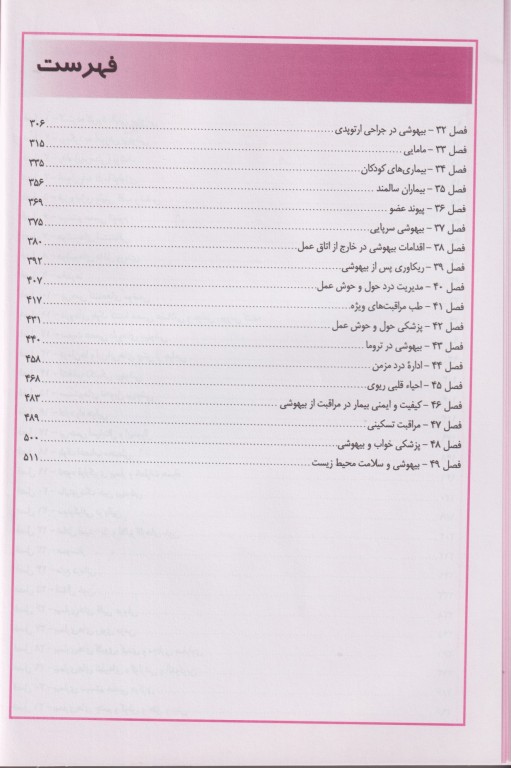 فهرست
فصل ۳۲ - بیهوشی در جراحی ارتوپدی ۳۰۶
فصل ۳۳ - مامایی ۳۱۵
فصل ۳۴ - بیماری‌های کودکان ۳۳۵
فصل ۳۵ - بیماران سالمند ۳۵۶
فصل ۳۶ - پیوند عضو ۳۶۹
فصل ۳۷ - بیهوشی سرپایی ۳۷۵
فصل ۳۸ - اقدامات بیهوشی در خارج از اتاق عمل ۳۸۰
فصل ۳۹ - ریکاوری پس از بیهوشی ۳۹۲
فصل ۴۰ - مدیریت درد حول و حوش عمل ۴۰۷
فصل ۴۱ - طب مراقبت‌های ویژه ۴۱۷
فصل ۴۲ - پزشکی حول و حوش عمل ۴۳۱
فصل ۴۳ - بیهوشی در تروما ۴۴۰
فصل ۴۴ - ادارهٔ درد مزمن ۴۵۸
فصل ۴۵ - احیاء قلبی ریوی ۴۶۸
فصل ۴۶ - کیفیت و ایمنی بیمار در مراقبت از بیهوشی ۴۸۳
فصل ۴۷ - مراقبت تسکینی: ۴۸۹
فصل ۴۸ - پزشکی خواب و بیهوشی ۵۰۰
فصل ۴۹ - بیهوشی و سلامت محیط زیست ۵۱۱